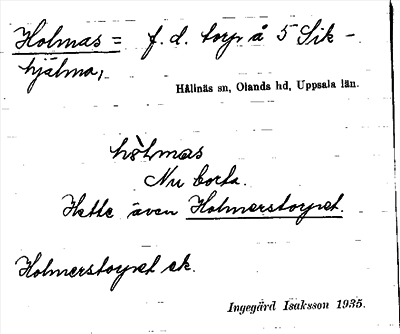 Holmas = f. d. torp å 5 Sik-
hjälma,
Hållnäs sn, Olands hd, Uppsala län.
hòlmas
Nu borta.
Hette även Holmerstorpet.
Holmerstorpet ek.
Ingegärd Isaksson 1935.